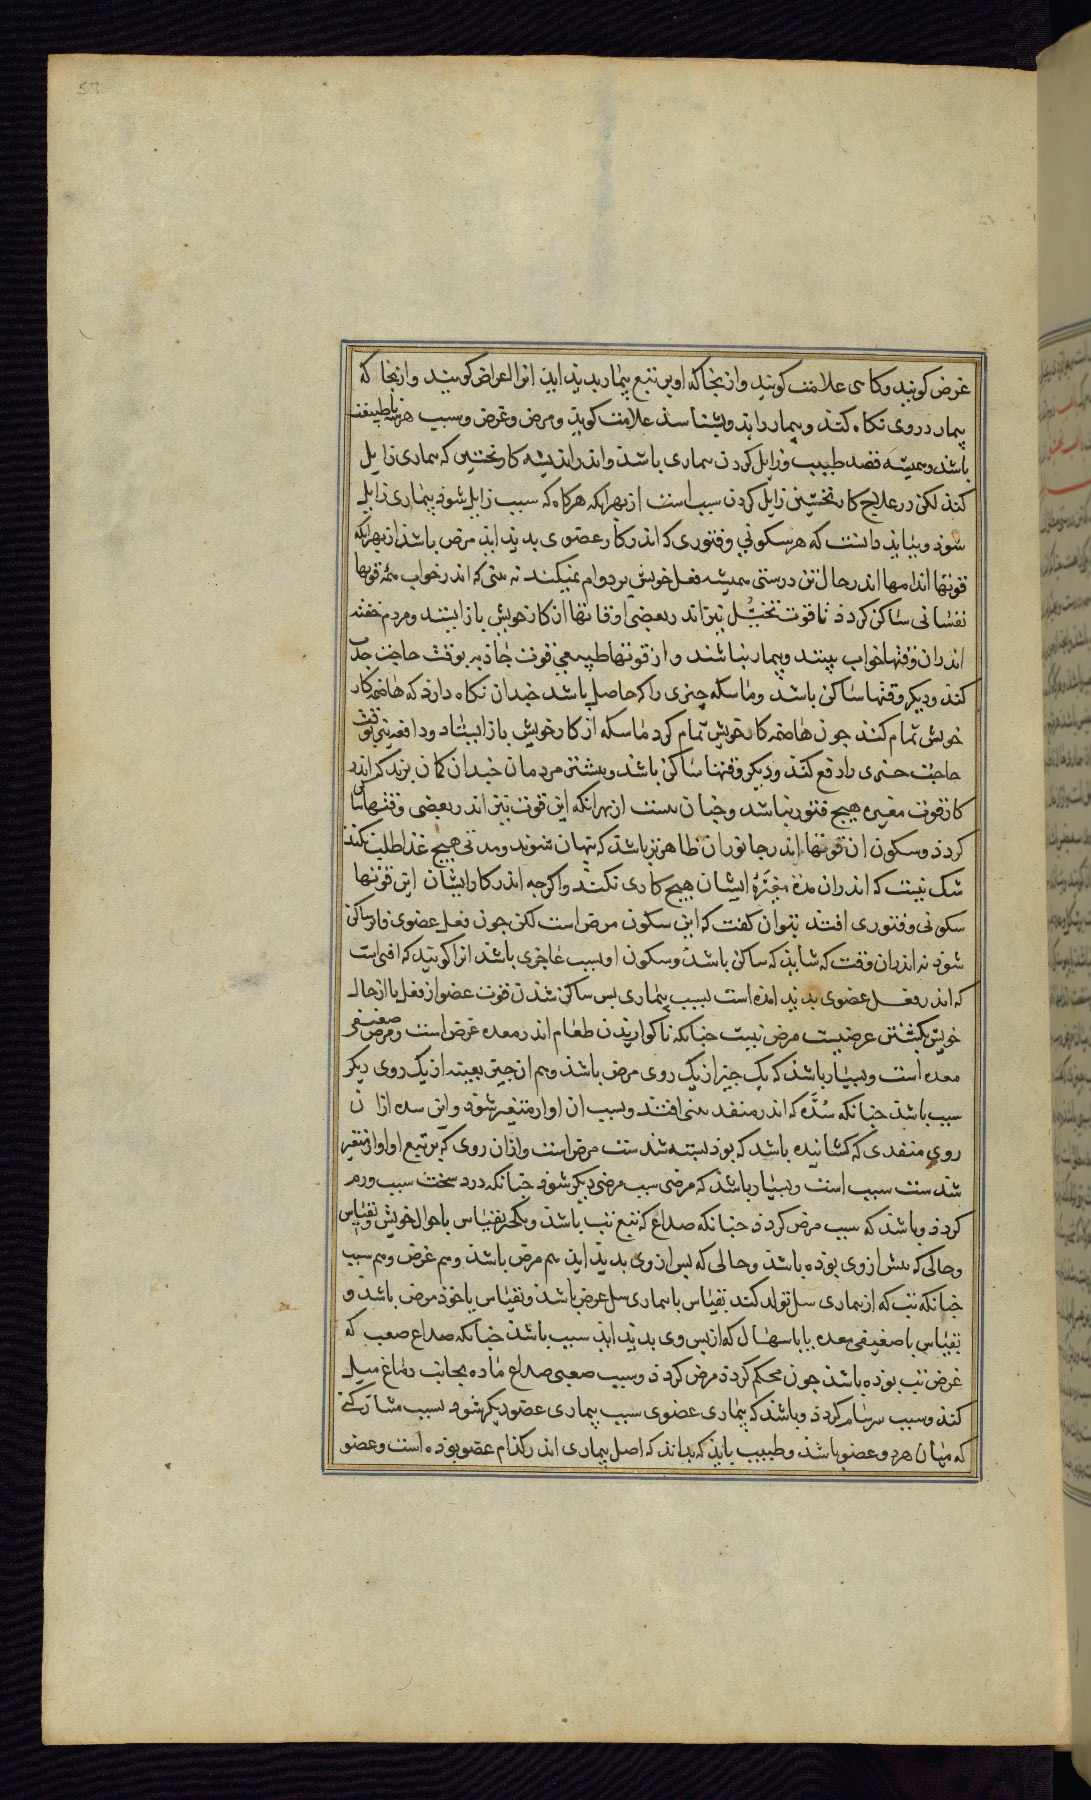 عرض کویند و کاهی علامت کویند وازنجا که او بر تبع بیمار بدید آید انرا اعراض کویند وازنجا که
بیمار در وی نکاه کند و بیمار را بذو بشناسد علامت کویند ومرض وعرض وسبب هرسه
باشد وهمیشه قصد طبیب زایل کردن بیماری باشد واندر اندیشه کار نخستین که بیماری زایل
کند لکن در علاج کار نخستین زایل کردن سبب است از بهر انکه هرکاه که سبب زایل شود بیماری زایل
شود وبباید دانست که هر سکونی وفتوری که اندر کار عضوی بدید اید مرض باشد از بهر انکه
قوتها اندامها اندر حال تن درستی همیشه فعل خویش بر دوام نمیکند نه بینی که اندر خواب همه قوتها
نفسانی ساکن کردذ تا قوت تخیل نیز اندر بعضی اوقاتها از کار خویش باز ایستد ومردم خفته
اندران وقتها خواب نبیند وبیمار نباشند و از قوتها طبیعی قوت جاذبه بوقت حاجت جذب
کند ودیکر وقتها ساکن باشد وماسکه چیزی را که حاصل باشد چندان نکاه دارد که هاضمه کار
خویش تمام کند چون هاضمه کار خویش تمام کرد ماسکه از کار خویش باز ایستاد ودافعه نیز بوقت
حاجت چیزی را دفع کند ودیکر وقتها ساکن باشد وبیشتر مردمان چندان کمان برند که اندر
کار قوت مغیره هیچ فتور نباشد وچنان نیست از بهر انکه این قوت نیز اندر بعضی وقتها ساکن
کردذ وسکون ان قوتها اندر جانوران ظاهرتر باشد که پنهان شوند ومدتی هیچ غذا طلب نکنند
شک نیست که اندران مدة مغیرة ایشان هیچ کاری نکند واکرچه اندر کار ایشان این قوتها
سکونی وفتوری افتد نتوان کفت که این سکون مرض است لکن چون فعل عضوی فاتر وساکن
شود نه اندران وقت که شاید که ساکن باشد وسکون او بسبب عاجزی باشد انرا کویند که افتی است
که اندر فعل عضوی بدید امده است بسبب بیماری بس ساکن شدن قوت عضو از فعل یا از حال
خویش بکشتن عرضیست مرض نیست چنانکه ناکواریدن طعام اندر معده عرض است ومرض ضعیفی
معده است وبسیار باشد که یک چیز از یک روی مرض باشد وهم ان چیز بعینه از یک روی دیکر
سبب باشد چنانکه سدّه که اندر منفذ بینی افتد وبسبب ان اواز متغیر شود واین سده ازان
روی منفذی که کشاذه باشد که بوذ بسته شدست مرض است وازان روی که بر تبع او اواز متغیر
شدست سبب است وبسیار باشد که مرضی سبب مرضی دیکر شود چنانکه درد سخت سبب ورم
کردذ وباشد که سبب مرض کردذ چنانکه صداع که تبع تب باشد ویکی بقیاس باحوال خویش وبقیاس
وحالی که بیش ازوی بوذه باشد وحالی که بس ازوی بدید اید هم مرض باشد وهم عرض وهم سبب
چنانکه تب که از بیماری سل تولد کند بقیاس با بیماری سل عرض باشد وبقیاس باخوذ مرض باشد و
بقیاس با ضعیفی معده یا با اسهال که از بس وی بدید اید سبب باشد چنانکه صداع صعب که
عرض تب بوذه باشد چون محکم کردذ مرض کردذ وسبب صعبی صداع ماده بجانب دماغ میل
کند وسبب سرسام کردذ وباشد که بیماری عضوی سبب بیماری عضو دیکر شود بسبب مشارکتی
که میان هردو عضو باشد وطبیب باید که بداند که اصل بیماری اندر کدام عضو بوذه است وعضو